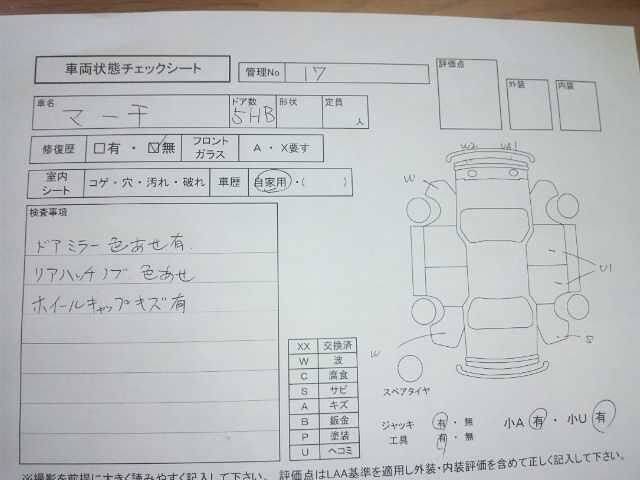 車両状態チェックシート
管理No 17
評価点
外装
内装
車名 マーチ
ドア数 5HB
形状
定員 人
修復歴 □有・☑無
フロントガラス A・X要す
室内シート コゲ・穴・汚れ・破れ
車歴 自家用・( )
検査事項
ドアミラー色あせ有
リアハッチノブ 色あせ
ホイールキャップキズ有
W2
W
U1
W
S
XX 交換済
W 波
C 腐食
S サビ
A キズ
B 鈑金
P 塗装
U ヘコミ
スペアタイヤ
ジャッキ 有・無
工具 有・無
小A 有・小U 有
※撮影を前提に大きく読みやすく記入して下さい。 評価点はLAA基準を適用し外装・内装評価を含めて正しく記入して下さい。